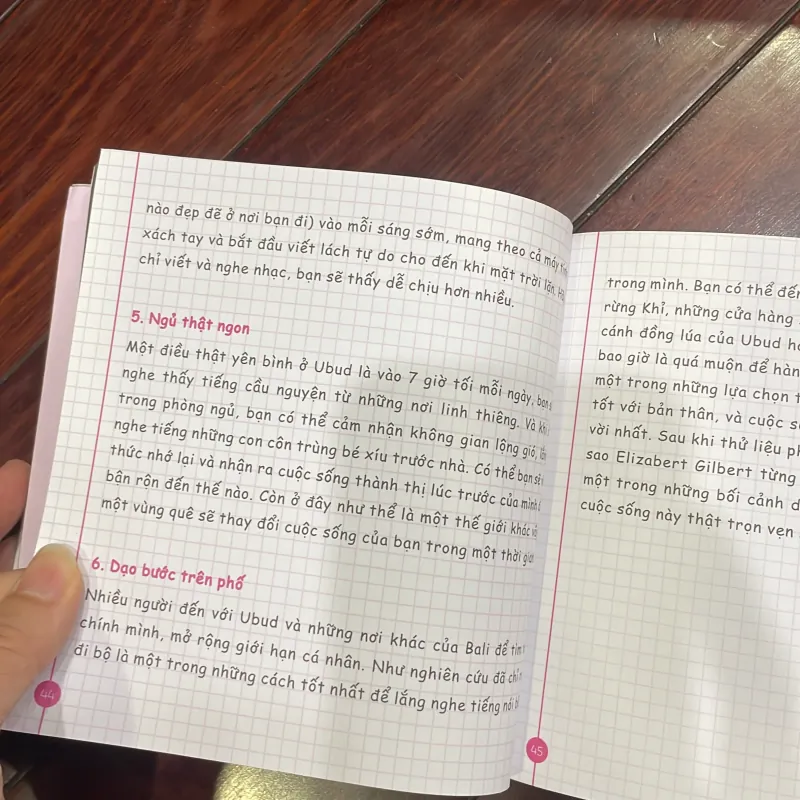 nào đẹp đẽ ở nơi bạn đi) vào mỗi sáng sớm, mang theo cả máy
xách tay và bắt đầu viết lách tự do cho đến khi mặt trời lặn.
chỉ viết và nghe nhạc, bạn sẽ thấy dễ chịu hơn nhiều.
5. Ngủ thật ngon
Một điều thật yên bình ở Ubud là vào 7 giờ tối mỗi ngày, bạn
nghe thấy tiếng cầu nguyện từ những nơi linh thiêng. Và khi
trong phòng ngủ, bạn có thể cảm nhận không gian lộng gió,
nghe tiếng những con côn trùng bé xíu trước nhà. Có thể bạn sẽ
thức nhớ lại và nhận ra cuộc sống thành thị lúc trước của mình
bận rộn đến thế nào. Còn ở đây như thể là một thế giới khác
một vùng quê sẽ thay đổi cuộc sống của bạn trong một thời gian
6. Dạo bước trên phố
Nhiều người đến với Ubud và những nơi khác của Bali để tìm
chính mình, mở rộng giới hạn cá nhân. Như nghiên cứu đã chỉ
đi bộ là một trong những cách tốt nhất để lắng nghe tiếng nói
44
trong mình. Bạn có thể đến
rừng Khỉ, những cửa hàng
cánh đồng lúa của Ubud
bao giờ là quá muộn để
một trong những lựa chọn
tốt với bản thân, và cuộc
vời nhất. Sau khi thử liệu
sao Elizabert Gilbert từng
một trong những bối cảnh
cuộc sống này thật trọn vẹn
45